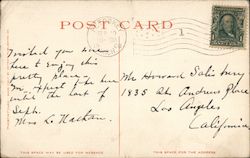 POST CARD
1
Wished you were
here to enjoy this
pretty place.
until the last of
Sept.
Mrs L.
Mr Howard Salisbury
1835 St Andrews Place
Los Angeles
California
THIS SPACE MAY BE USED FOR MESSAGE
THIS SPACE FOR THE ADDRESS